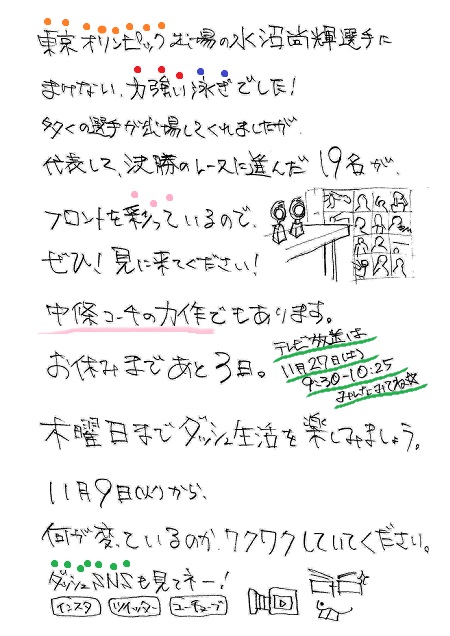 東京オリンピック出場の水沼尚輝選手に
まけない、力強い泳ぎでした！
多くの選手が出場してくれましたが、
代表して、決勝のレースに進んだ19名が、
フロントを彩っているので、
ぜひ！見に来てください！
中條コーチの力作でもあります。
お休みまであと3日。
テレビ放送は
11月27日(土)
9:30-10:25
みんなみてね☆
木曜日までダッシュ生活を楽しみましょう。
11月9日(火)から、
何が変っているのか、ワクワクしていてください。
ダッシュSNSも見てネー！
インスタ ツイッター ユーチューブ